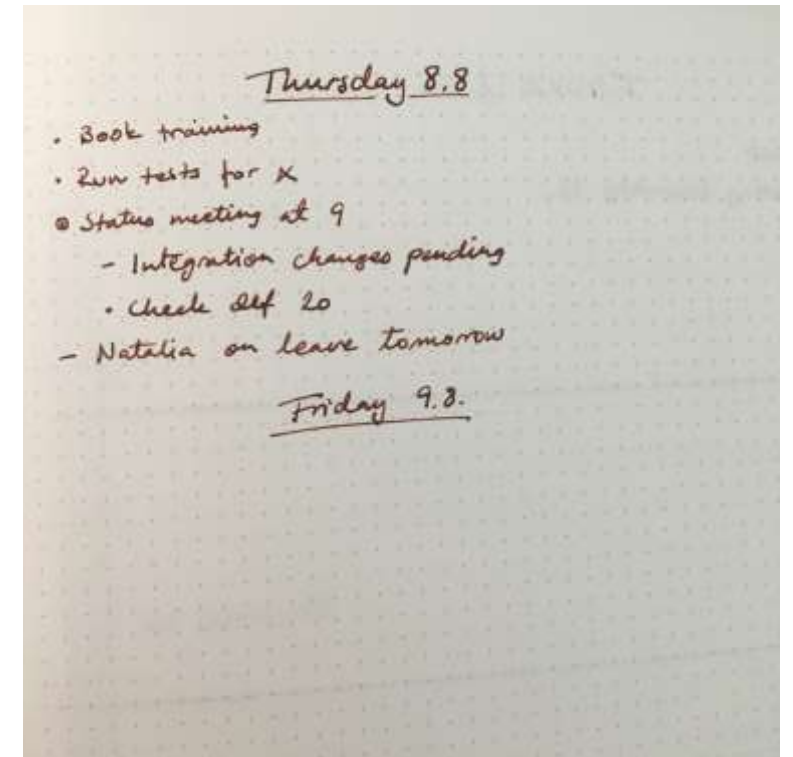 Thursday 8.8
· Book training
· Run tests for x
o Status meeting at 9
- Integration changes pending
· Check def 20
- Natalia on leave tomorrow
Friday 9.8.